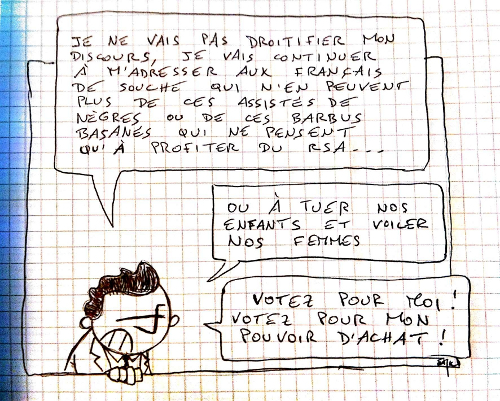 JE NE VAIS PAS DROITIFIER MON
DISCOURS, JE VAIS CONTINUER
À M'ADRESSER AUX FRANÇAIS
DE SOUCHE QUI N'EN PEUVENT
PLUS DE CES ASSISTÉS DE
NÈGRES OU DE CES BARBUS
BASANÉS QUI NE PENSENT
QU'À PROFITER DU RSA...
OU À TUER NOS
ENFANTS ET VOILER
NOS FEMMES
VOTEZ POUR MOI !
VOTEZ POUR MON
POUVOIR D'ACHAT !